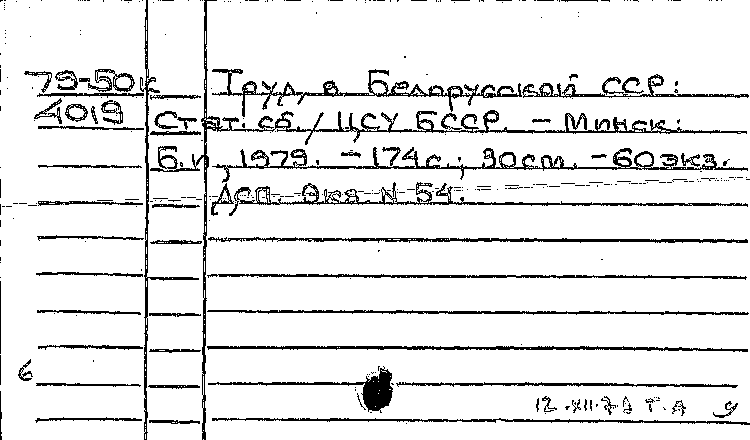 79-50к Труд в Белорусской ССР:
4019 Стат. сб. / ЦСУ БССР. - Минск:
Б.и., 1979. - 174с.; 30см. - 60экз.
ДСП. Экз. N 54.
6
12.XII.79 Т.А